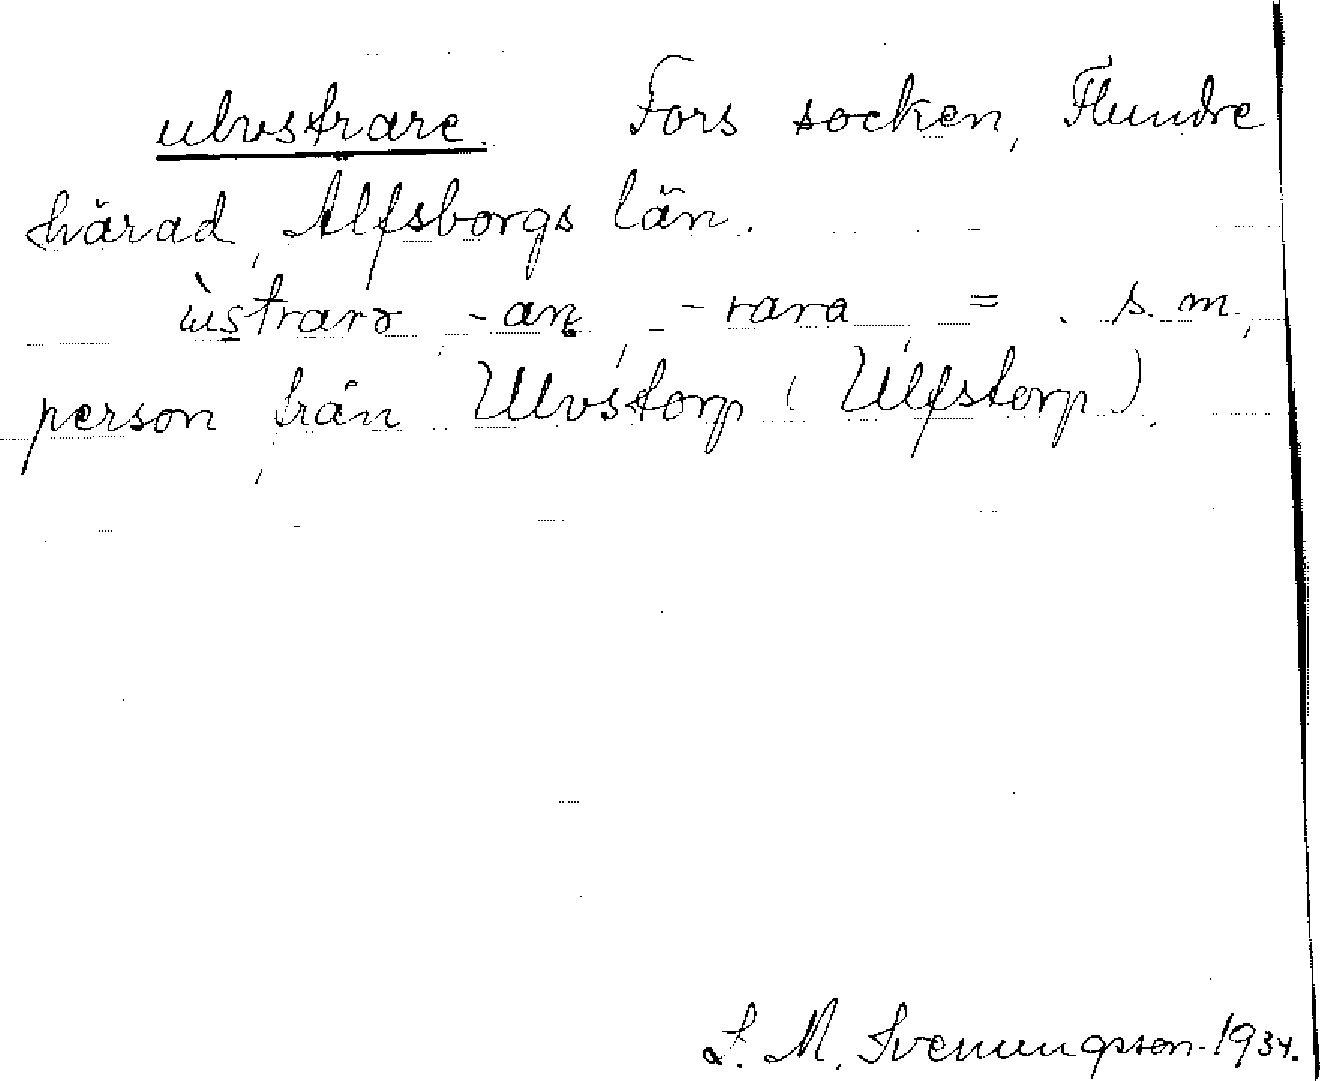 ulvstrare. Fors socken, Flundre
härad, Älfsborgs län.
ùstrarə, -an, -rara, = s. m.,
person från Ulvstorp (Ulfstorp).
S. M. Svenungsson-1934.